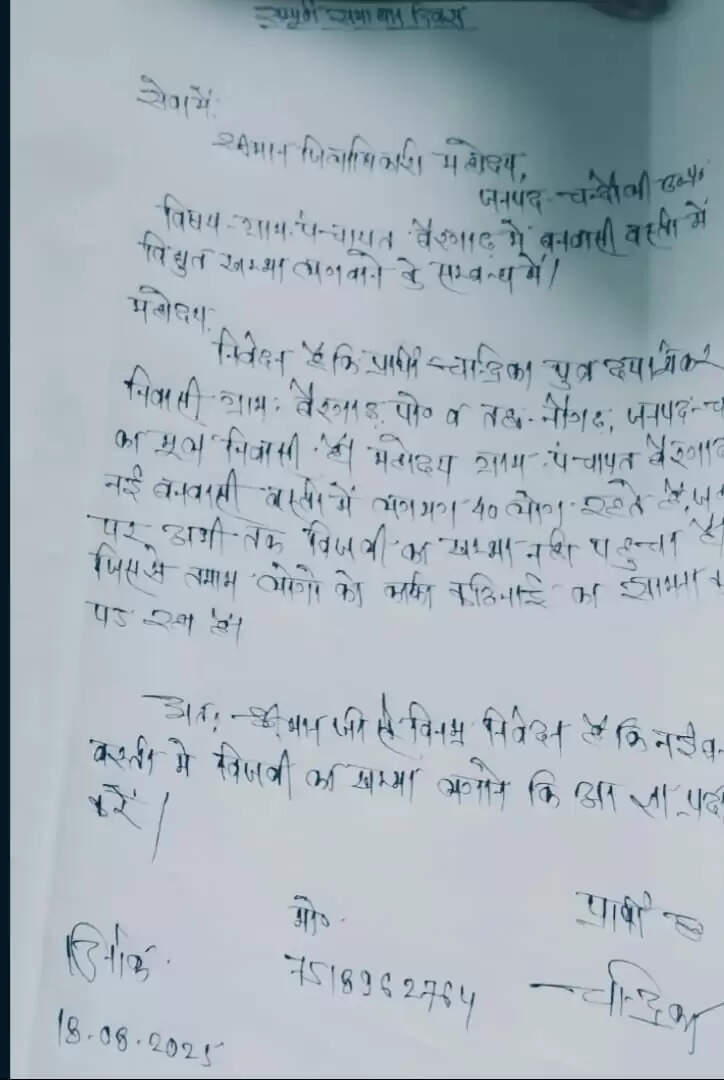 सम्पूर्ण समाधान दिवस
सेवा में,
श्रीमान जिलाधिकारी महोदय,
जनपद-चन्दौली उ०प्र०
विषय-ग्राम-पंचायत बैरगाढ़ में बनवासी बस्ती में
विद्युत खम्भा लगवाने के सम्बन्ध में।
महोदय,
निवेदन है कि प्रार्थी चन्द्रिका पुत्र
निवासी ग्राम- बैरगाढ़ पो० व तह०-नौगढ़, जनपद-च
का मूल निवासी है। महोदय ग्राम पंचायत बैरगाढ
नई बनवासी बस्ती में लगभग 40 लोग रहते है, ज
पर अभी तक बिजली का खम्भा नही पहुन्चा है।
जिससे तमाम लोगो को काफी कठिनाई का सामना क
पड़ रहा है।
अतः श्रीमान जी से विनम्र निवेदन है कि नई बन
बस्ती मे बिजली का खम्भा लगाने कि
करें।
प्रार्थी
मो०
दिनांक
7518962764
चन्द्रिका
18.08.2025